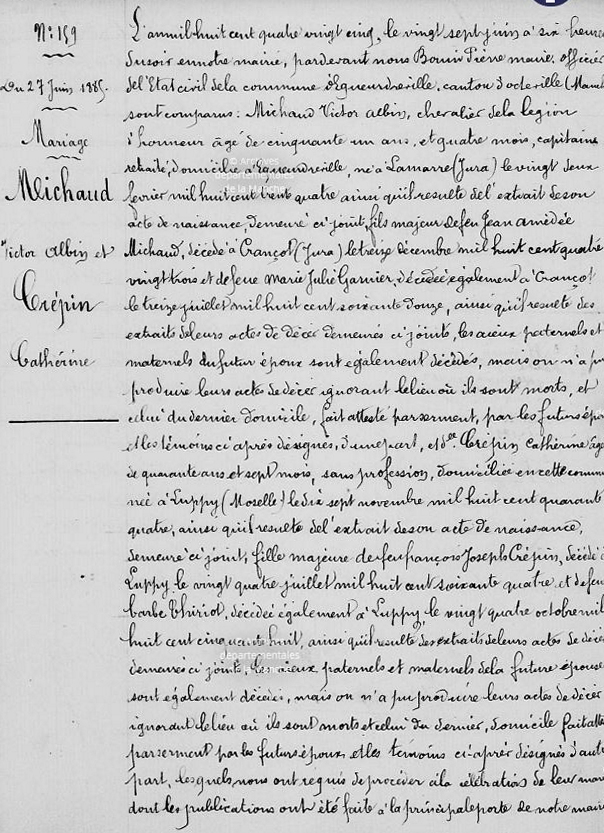 N: 159
Du 27 Juin 1885.
Mariage
Michaud
Victor Albin et
Crépin
Cathérine
L'an mil huit cent quatre vingt cinq, le vingt sept juin à six heures
du soir en notre mairie, pardevant nous Bonin Pierre maire, officier
de l'Etat civil de la commune d'Equeurdreville, canton d'octeville (Manch
sont comparus: Michaud Victor Albin, chevalier de la legion
d'honneur âgé de cinquante un ans, et quatre mois, capitaine
retraité, domicilié à Equeurdreville, né à Lamarre (Jura) le vingt deux
fevrier mil huit cent trente quatre ainsi qu'il resulte de l'extrait de son
acte de naissance, demeuré ci-joint, fils majeur de feu Jean Amédée
Michaud, décédé à Crançot (Jura) le treize décembre mil huit cent quatre
vingt trois et de feue Marie Julie Garnier, décédée également à Crançot
le treize juillet mil huit cent soixante douze, ainsi qu'il resulte des
extraits de leurs actes de décès demeurés ci-joints, les aieux paternels et
maternels du futur époux sont également décédés, mais on n'a pu
produire leurs actes de décès ignorant le lieu où ils sont morts, et
celui du dernier domicile, fait attesté par serment, par les futurs épou
et les témoins ci-après désignés, d'une part, et dlle Crépin Catherine âgée
de quarante ans et sept mois, sans profession, domiciliée en cette commune
née à Luppy (Moselle) le dix sept novembre mil huit cent quarante
quatre, ainsi qu'il resulte de l'extrait de son acte de naissance,
demeuré ci-joint, fille majeure de feu françois Joseph Crépin, décédé à
Luppy le vingt quatre juillet mil huit cent soixante quatre, et de feue
Barbe Thiriot, décédée également à Luppy, le vingt quatre octobre mil
huit cent cinquante huit, ainsi qu'il resulte des extraits de leurs actes de décès
demeurés ci-joints, les aieux paternels et maternels de la future épouse
sont également décédés, mais on n'a pu produire leurs actes de décès
ignorant le lieu où ils sont morts et celui du dernier domicile fait attes
par serment par les futurs époux et les témoins ci-après désignés d'autre
part, lesquels nous ont requis de procéder à la célébration de leur mari
dont les publications ont été faite à la principale porte de notre mairie
© Archives
départementales
de la Manche
départementales